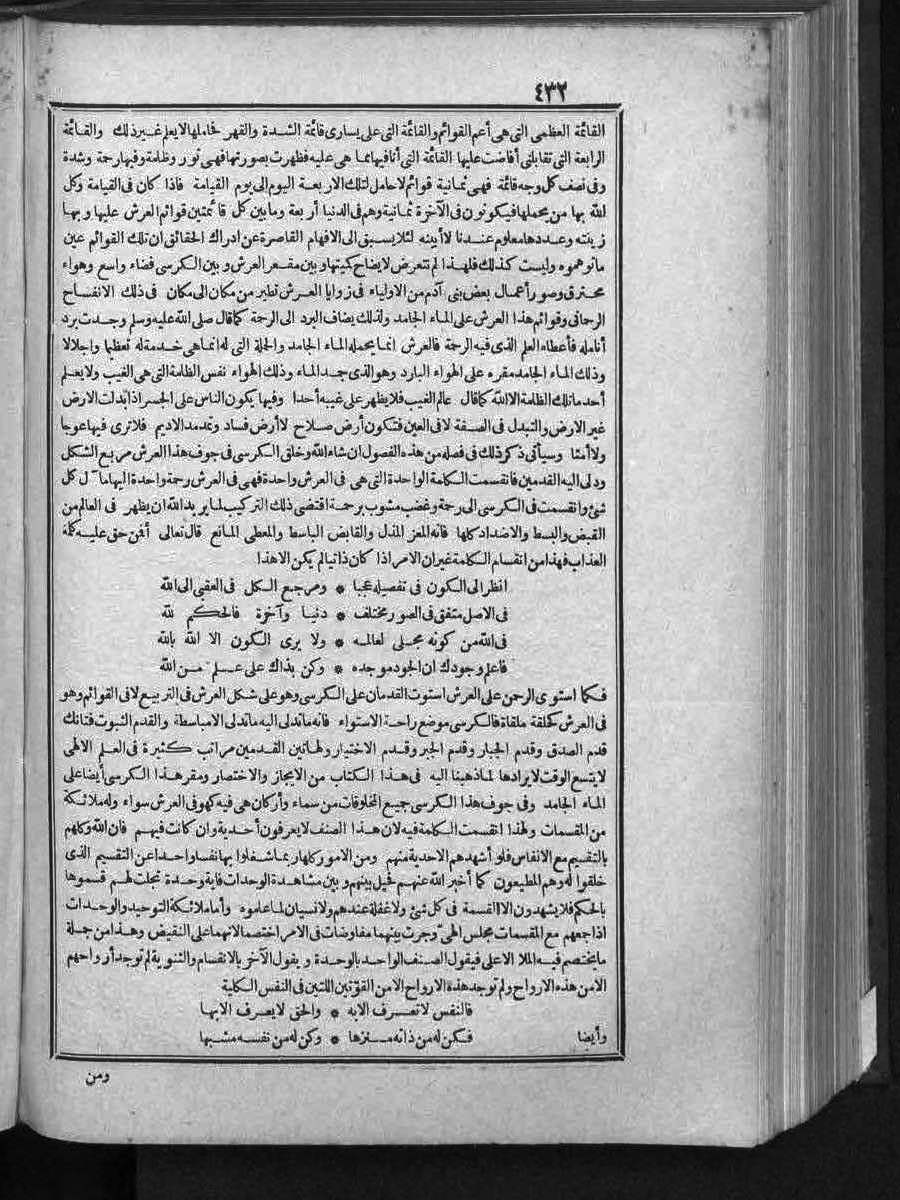 ٤٣٢
القائمة العظمى التى هى أعم القوائم والقائمة التى على يسارى قائمة الشدة والقهر فحاملها لا يعلم غير ذلك والقائمة
الرابعة التى تقابلنى أفاضت عليها القائمة التى أنا فيها مما هى عليه فظهرت بصورتها فهى نور وظلمة وفيها رحمة وشدة
وفى نصف كل وجه قائمة فهى ثمانية قوائم لا حامل لتلك الاربعة اليوم الى يوم القيامة فاذا كان فى القيامة وكل
الله بها من يحملها فيكونون فى الآخرة ثمانية وهم فى الدنيا أربعة وما بين كل قائمتين قوائم العرش عليها وبها
زينته وعددها معلوم عندنا لا أبينه لئلا يسبق الى الافهام القاصرة عن ادراك الحقائق ان تلك القوائم عين
ما توهموه وليست كذلك فلهذا لم نتعرض لايضاح كميتها وبين مقعر العرش وبين الكرسى فضاء واسع وهواء
محترق وصور أعمال بعض بنى آدم من الاولياء فى زوايا العرش تطير من مكان الى مكان فى ذلك الانفساح
الرحمانى وقوائم هذا العرش على الماء الجامد ولذلك يضاف البرد الى الرحمة كما قال صلى الله عليه وسلم وجدت برد
أنامله فأعطاه العلم الذى فيه الرحمة فالعرش انما يحمله الماء الجامد والحملة التى له انما هى خدمة له تعظيما واجلالا
وذلك الماء الجامد مقره على الهواء البارد وهو الذى جمد الماء وذلك الهواء نفس الظلمة التى هى الغيب ولا يعلم
أحد ما تلك الظلمة الا الله كما قال عالم الغيب فلا يظهر على غيبه أحدا وفيها يكون الناس على الجسر اذا بدلت الارض
غير الارض والتبدل فى الصفة لا فى العين فتكون أرض صلاح لا أرض فساد وتمد مد الاديم فلا ترى فيها عوجا
ولا أمتا وسيأتى ذكر ذلك فى فصله من هذه الفصول ان شاء الله وخلق الكرسى فى جوف هذا العرش مربع الشكل
ودلى اليه القدمين فانقسمت الكلمة الواحدة التى هى فى العرش واحدة فهى فى العرش رحمة واحدة اليها مآل كل
شئ وانقسمت فى الكرسى الى رحمة وغضب مشوب برحمة اقتضى ذلك التركيب لما يريد الله ان يظهر فى العالم من
القبض والبسط والاضداد كلها فانه المعز المذل والقابض الباسط والمعطى المانع قال تعالى أفمن حق عليه كلمة
العذاب فهذا من انقسام الكلمة غير ان الامر اذا كان ذاتيا لم يكن الا هذا
انظر الى الكون فى تفصيله عجبا * ومرجع الكل فى العقبى الى الله
فى الاصل متفق فى الصور مختلف * دنيا وآخرة فالحكم لله
فى الله من كونه مجلى لعالمه * ولا يرى الكون الا الله بالله
فاعلم وجودك ان الجود موجده * وكن بذاك على علم من الله
فكما استوى الرحمن على العرش استوت القدمان على الكرسى وهو على شكل العرش فى التربيع لا فى القوائم وهو
فى العرش كحلقة ملقاة فالكرسى موضع راحة الاستواء فانه ما تدلى اليه ما تدلى الا مباسطة والقدم الثبوت فتانك
قدم الصدق وقدم الجبار وقدم الجبر وقدم الاختيار ولهاتين القدمين مراتب كثيرة فى العلم الالهى
لا يتسع الوقت لايرادها لما ذهبنا اليه فى هذا الكتاب من الايجاز والاختصار ومقر هذا الكرسى أيضا على
الماء الجامد وفى جوف هذا الكرسى جميع المخلوقات من سماء وأركان هى فيه كهو فى العرش سواء وله ملائكة
من المقسمات ولهذا انقسمت الكلمة فيه لان هذا الصنف لا يعرفون أحدية وان كانت فيهم فان الله وكلهم
بالتقسيم مع الانفاس فلو أشهدهم الاحدية منهم ومن الامور كلها ربما شغلوا بها نفسا واحدا عن التقسيم الذى
خلقوا له وهم المطيعون كما أخبر الله عنهم فحيل بينهم وبين مشاهدة الوحدات فاية وحدة تجلت لهم قسموها
بالحكم فلا يشهدون الا القسمة فى كل شئ ولا غفلة عندهم ولا نسيان لما علموه وأما ملائكة التوحيد والوحدات
اذا جمعهم مع المقسمات مجلس الهى وجرت بينهما مفاوضات فى الامر اختصما لانهما على النقيض وهذا من جملة
ما يختصم فيه الملا الاعلى فيقول الصنف الواحد بالوحدة ويقول الآخر بالانقسام والثنوية لم توجد أرواحهم
الا من هذه الارواح ولم توجد هذه الارواح الا من القوتين اللتين فى النفس الكلية
فالنفس لا تعرف الا به * والحق لا يعرف الا بها
وأيضا فكن له من ذاته منزها * وكن له من نفسه مشبها
ومن